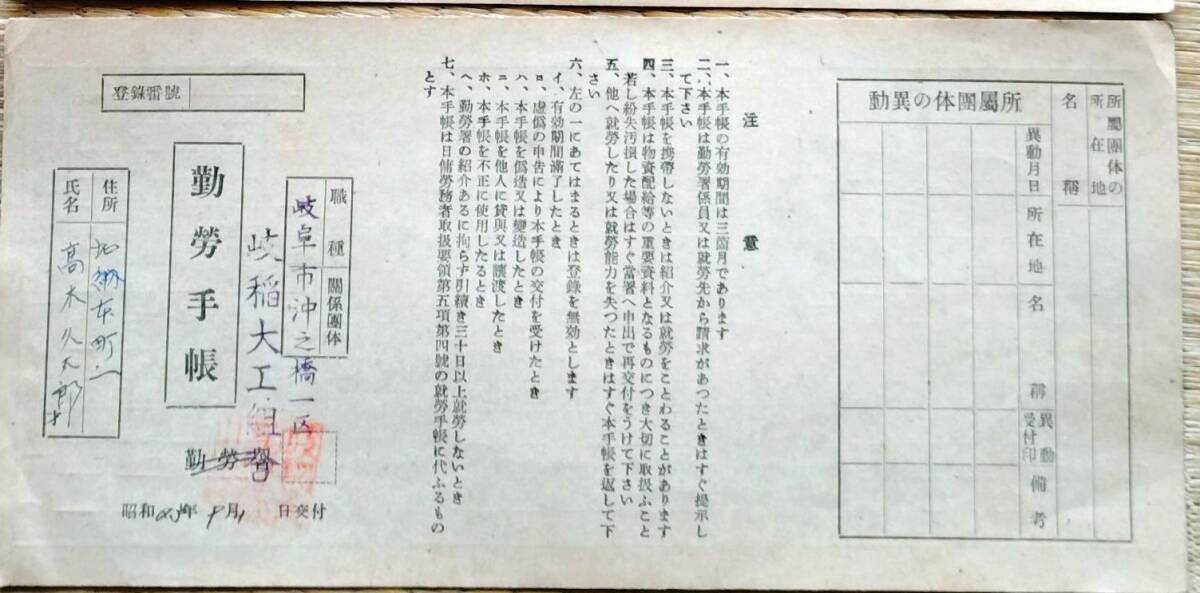 所屬團体の異動
所屬團体の
所在地
名稱
異動月日
所在地
名稱
異動受付印
備考
注意
一、本手帳の有効期間は三箇月であります
二、本手帳は勤勞署係員又は就勞先から請求があつたときはすぐ提示し
て下さい
三、本手帳を携帶しないときは紹介又は就勞をことわることがあります
四、本手帳は物資配給等の重要資料となるものにつき大切に取扱ふこと
若し紛失汚損した場合はすぐ當署へ申出で再交付をうけて下さい
五、他へ就勞したり又は就勞能力を失つたときはすぐ本手帳を返して下
さい
六、左の一にあてはまるときは登錄を無効とします
イ、有効期間滿了したとき
ロ、虛僞の申吿により本手帳の交付を受けたとき
ハ、本手帳を僞造又は變造したとき
ニ、本手帳を他人に貸與又は讓渡したとき
ホ、本手帳を不正に使用したるとき
ヘ、勤勞署の紹介あるに拘らず引續き三十日以上就勞しないとき
七、本手帳は日傭勞務者取扱要領第五項第四號の就勞手帳に代ふるもの
とす
登錄番號
職種
關係團体
岐阜市沖之橋一区
岐稲大工組
勤勞手帳
勤勞署
昭和 年 9月1日交付
住所
加納本町一
氏名
高木久太郎